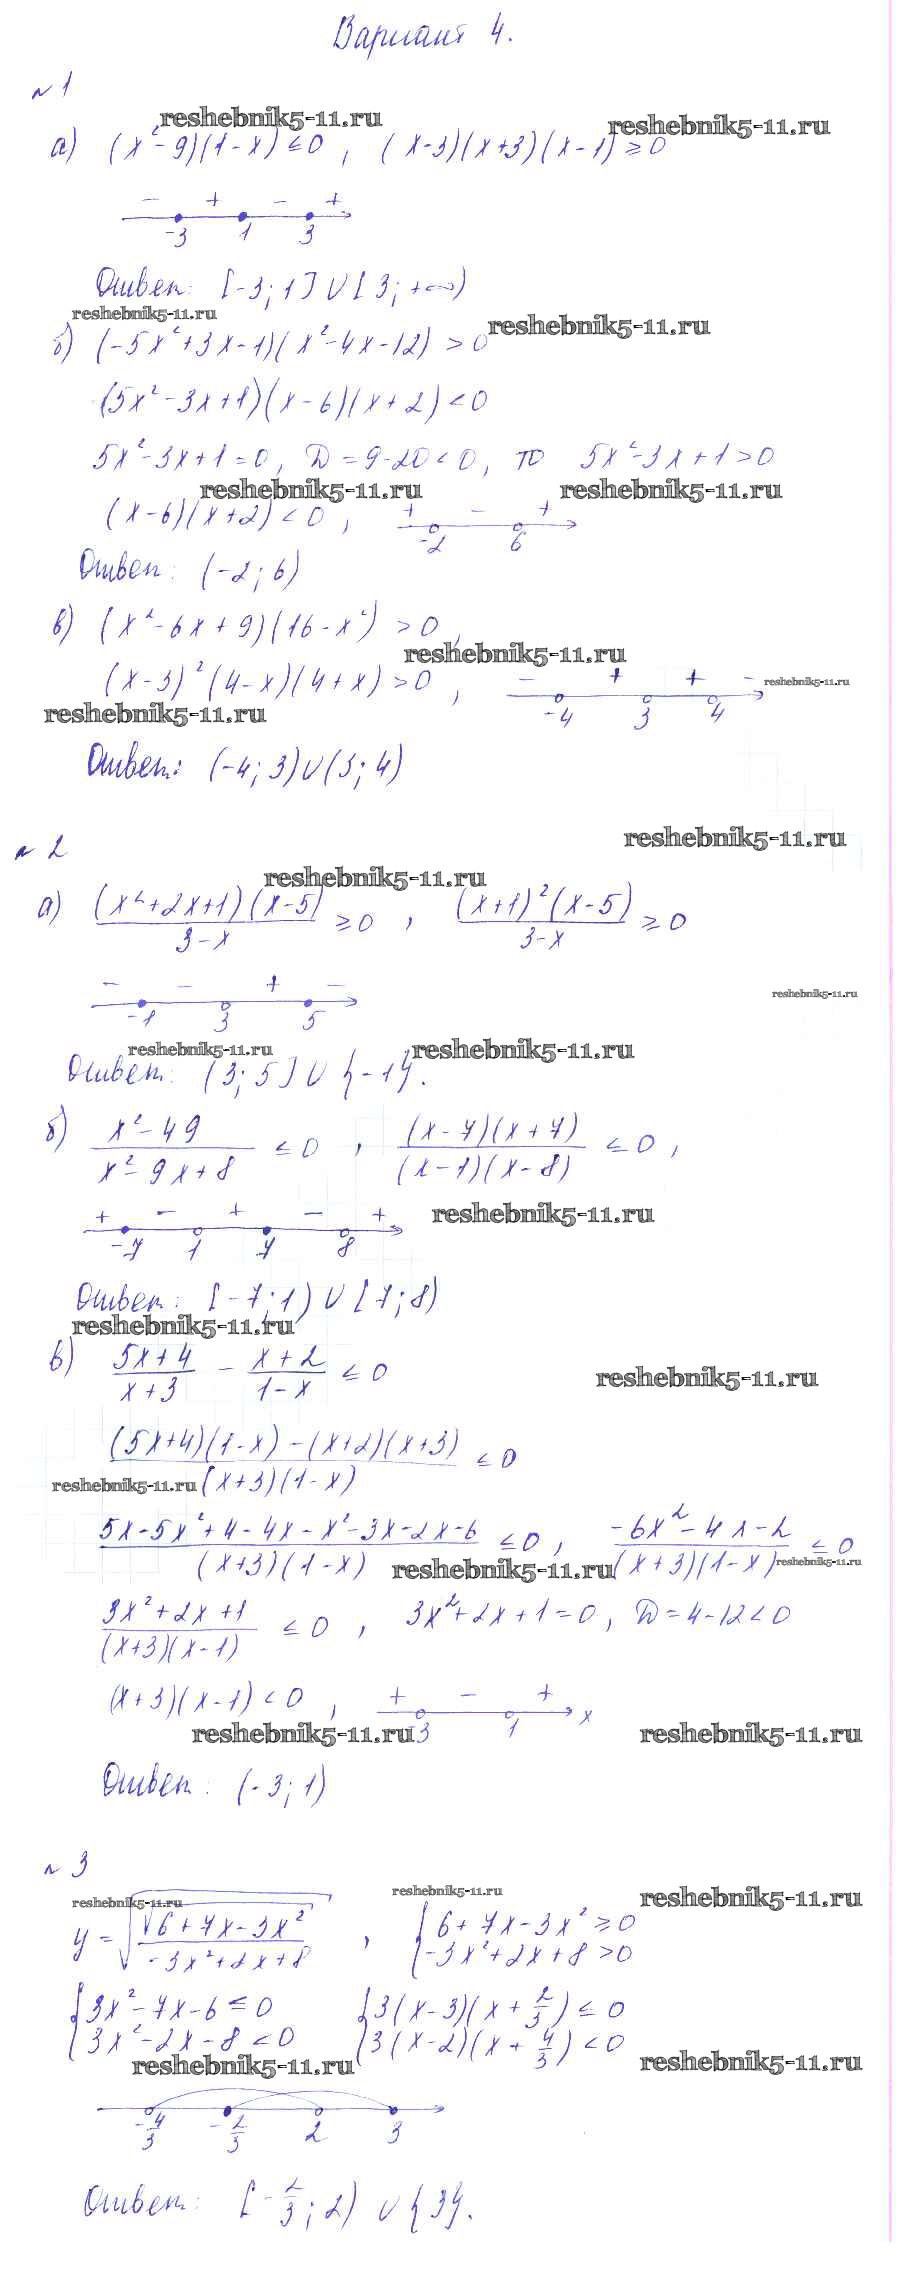 Вариант 4.
№ 1
reshebnik5-11.ru
reshebnik5-11.ru
а) (x²-9)(1-x) ≤ 0 , (x-3)(x+3)(x-1) ≥ 0
- + - +
-3 1 3
Ответ: [-3; 1] ∪ [3; +∞)
reshebnik5-11.ru
reshebnik5-11.ru
б) (-5x²+3x-1)(x²-4x-12) > 0
(5x²-3x+1)(x-6)(x+2) < 0
5x²-3x+1=0, D=9-20<0, то 5x²-3x+1>0
reshebnik5-11.ru reshebnik5-11.ru
(x-6)(x+2) < 0 , + - +
-2 6
Ответ: (-2; 6)
в) (x²-6x+9)(16-x²) > 0 ,
reshebnik5-11.ru
(x-3)²(4-x)(4+x) > 0 , - + + - reshebnik5-11.ru
-4 3 4
reshebnik5-11.ru
Ответ: (-4; 3) ∪ (3; 4)
reshebnik5-11.ru
№ 2
reshebnik5-11.ru
а) (x²+2x+1)(x-5) / 3-x ≥ 0 , (x+1)²(x-5) / 3-x ≥ 0
- - + -
-1 3 5
reshebnik5-11.ru
reshebnik5-11.ru reshebnik5-11.ru
Ответ: (3; 5] ∪ {-1}.
б) x²-49 / x²-9x+8 ≤ 0 , (x-7)(x+7) / (x-1)(x-8) ≤ 0 ,
+ - + - +
-7 1 7 8
reshebnik5-11.ru
Ответ: [-7; 1) ∪ [7; 8)
reshebnik5-11.ru
в) 5x+4 / x+3 - x+2 / 1-x ≤ 0
reshebnik5-11.ru
(5x+4)(1-x)-(x+2)(x+3) / (x+3)(1-x) ≤ 0
reshebnik5-11.ru
5x-5x²+4-4x-x²-3x-2x-6 / (x+3)(1-x) ≤ 0 , -6x²-4x-2 / (x+3)(1-x) ≤ 0
reshebnik5-11.ru reshebnik5-11.ru
3x²+2x+1 / (x+3)(x-1) ≤ 0 , 3x²+2x+1=0, D=4-12<0
(x+3)(x-1) < 0 , + - +
-3 1 x
reshebnik5-11.ru reshebnik5-11.ru
Ответ: (-3; 1)
№ 3
reshebnik5-11.ru reshebnik5-11.ru reshebnik5-11.ru
y = √(√6+7x-3x² / -3x²+2x+8) , { 6+7x-3x² ≥ 0
-3x²+2x+8 > 0
{ 3x²-7x-6 ≤ 0 { 3(x-3)(x+2/3) ≤ 0
3x²-2x-8 < 0 3(x-2)(x+4/3) < 0
reshebnik5-11.ru reshebnik5-11.ru
-4/3 -2/3 2 3
Ответ: [-2/3; 2) ∪ {3}.